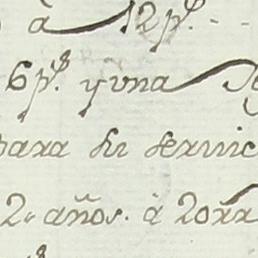 à 12 p.s
6 p.s y vna
para su seruic
2.. años. à 20 rr